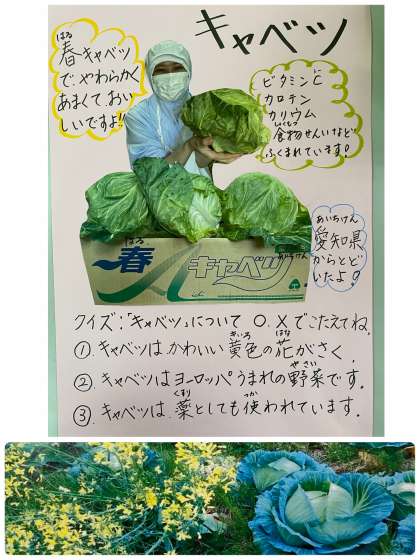 キャベツ
はる
春キャベツ
で、やわらかく
あまくて おい
しいですよ!!
ビタミンC
カロテン
カリウム
しょくもつ
食物せんいなど
ふくまれています!
あいちけん
愛知県
からとど
いたよ!
はる
春キャベツ
クイズ:「キャベツ」について ○、×でこたえてね。
きいろ はな
①.キャベツは かわいい 黄色の花がさく。
やさい
②.キャベツはヨーロッパうまれの野菜です。
くすり つか
③.キャベツは、薬としても使われています。